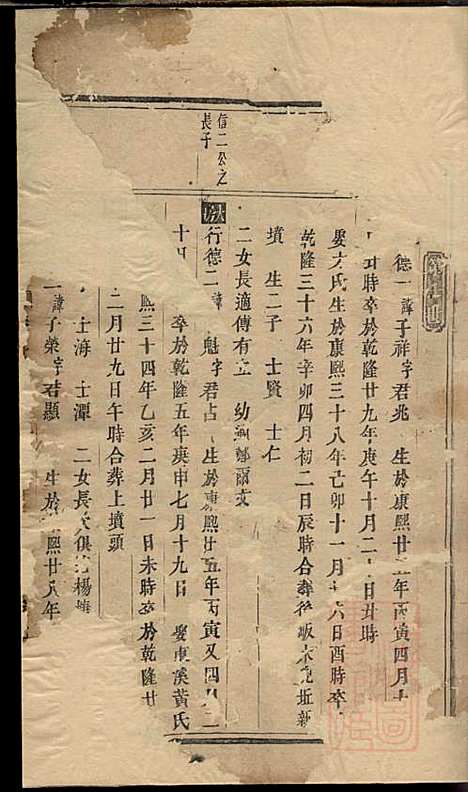 德一諱子祥字君兆 生於康熙廿 年丙寅四月十
時卒於乾隆廿九年庚午十月二 日丑時
娶 氏生於康熙三十八年己卯十一月十六日酉時卒
乾隆三十六年辛卯四月初二日辰時合葬後坂 新
墳 生二子 士賢 士仁
二女長適傅有 幼適鄭爾文
信二公之
長子
行德二諱 魁字君占 生於康熙廿五年丙寅又四月二
十 卒於乾隆五年庚申七月十九日 娶東溪黃氏
熙三十四年乙亥二月廿一日未時卒於乾隆廿
二月廿九日午時合葬上墳頭
士海 士潭 二女長次俱適楊
一諱子榮字君顯 生於 熙廿八年